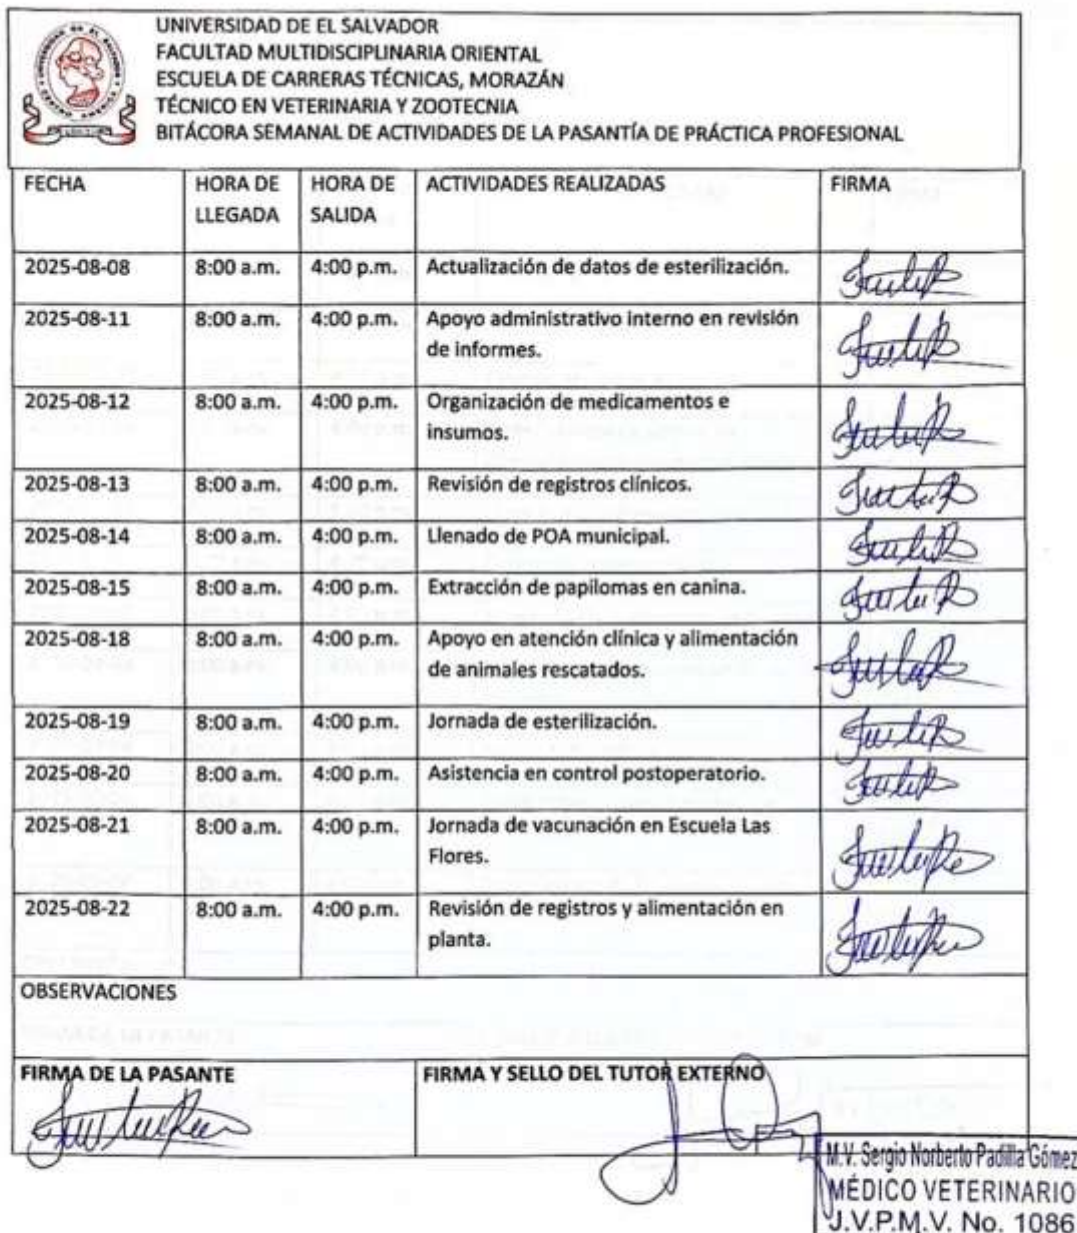 UNIVERSIDAD DE EL SALVADOR
FACULTAD MULTIDISCIPLINARIA ORIENTAL
ESCUELA DE CARRERAS TÉCNICAS, MORAZÁN
TÉCNICO EN VETERINARIA Y ZOOTECNIA
BITÁCORA SEMANAL DE ACTIVIDADES DE LA PASANTÍA DE PRÁCTICA PROFESIONAL
FECHA HORA DE LLEGADA HORA DE SALIDA ACTIVIDADES REALIZADAS FIRMA
2025-08-08 8:00 a.m. 4:00 p.m. Actualización de datos de esterilización.
2025-08-11 8:00 a.m. 4:00 p.m. Apoyo administrativo interno en revisión
de informes.
2025-08-12 8:00 a.m. 4:00 p.m. Organización de medicamentos e
insumos.
2025-08-13 8:00 a.m. 4:00 p.m. Revisión de registros clínicos.
2025-08-14 8:00 a.m. 4:00 p.m. Llenado de POA municipal.
2025-08-15 8:00 a.m. 4:00 p.m. Extracción de papilomas en canina.
2025-08-18 8:00 a.m. 4:00 p.m. Apoyo en atención clínica y alimentación
de animales rescatados.
2025-08-19 8:00 a.m. 4:00 p.m. Jornada de esterilización.
2025-08-20 8:00 a.m. 4:00 p.m. Asistencia en control postoperatorio.
2025-08-21 8:00 a.m. 4:00 p.m. Jornada de vacunación en Escuela Las
Flores.
2025-08-22 8:00 a.m. 4:00 p.m. Revisión de registros y alimentación en
planta.
OBSERVACIONES
FIRMA DE LA PASANTE FIRMA Y SELLO DEL TUTOR EXTERNO
M.V. Sergio Norberto Padilla Gómez
MÉDICO VETERINARIO
J.V.P.M.V. No. 1086